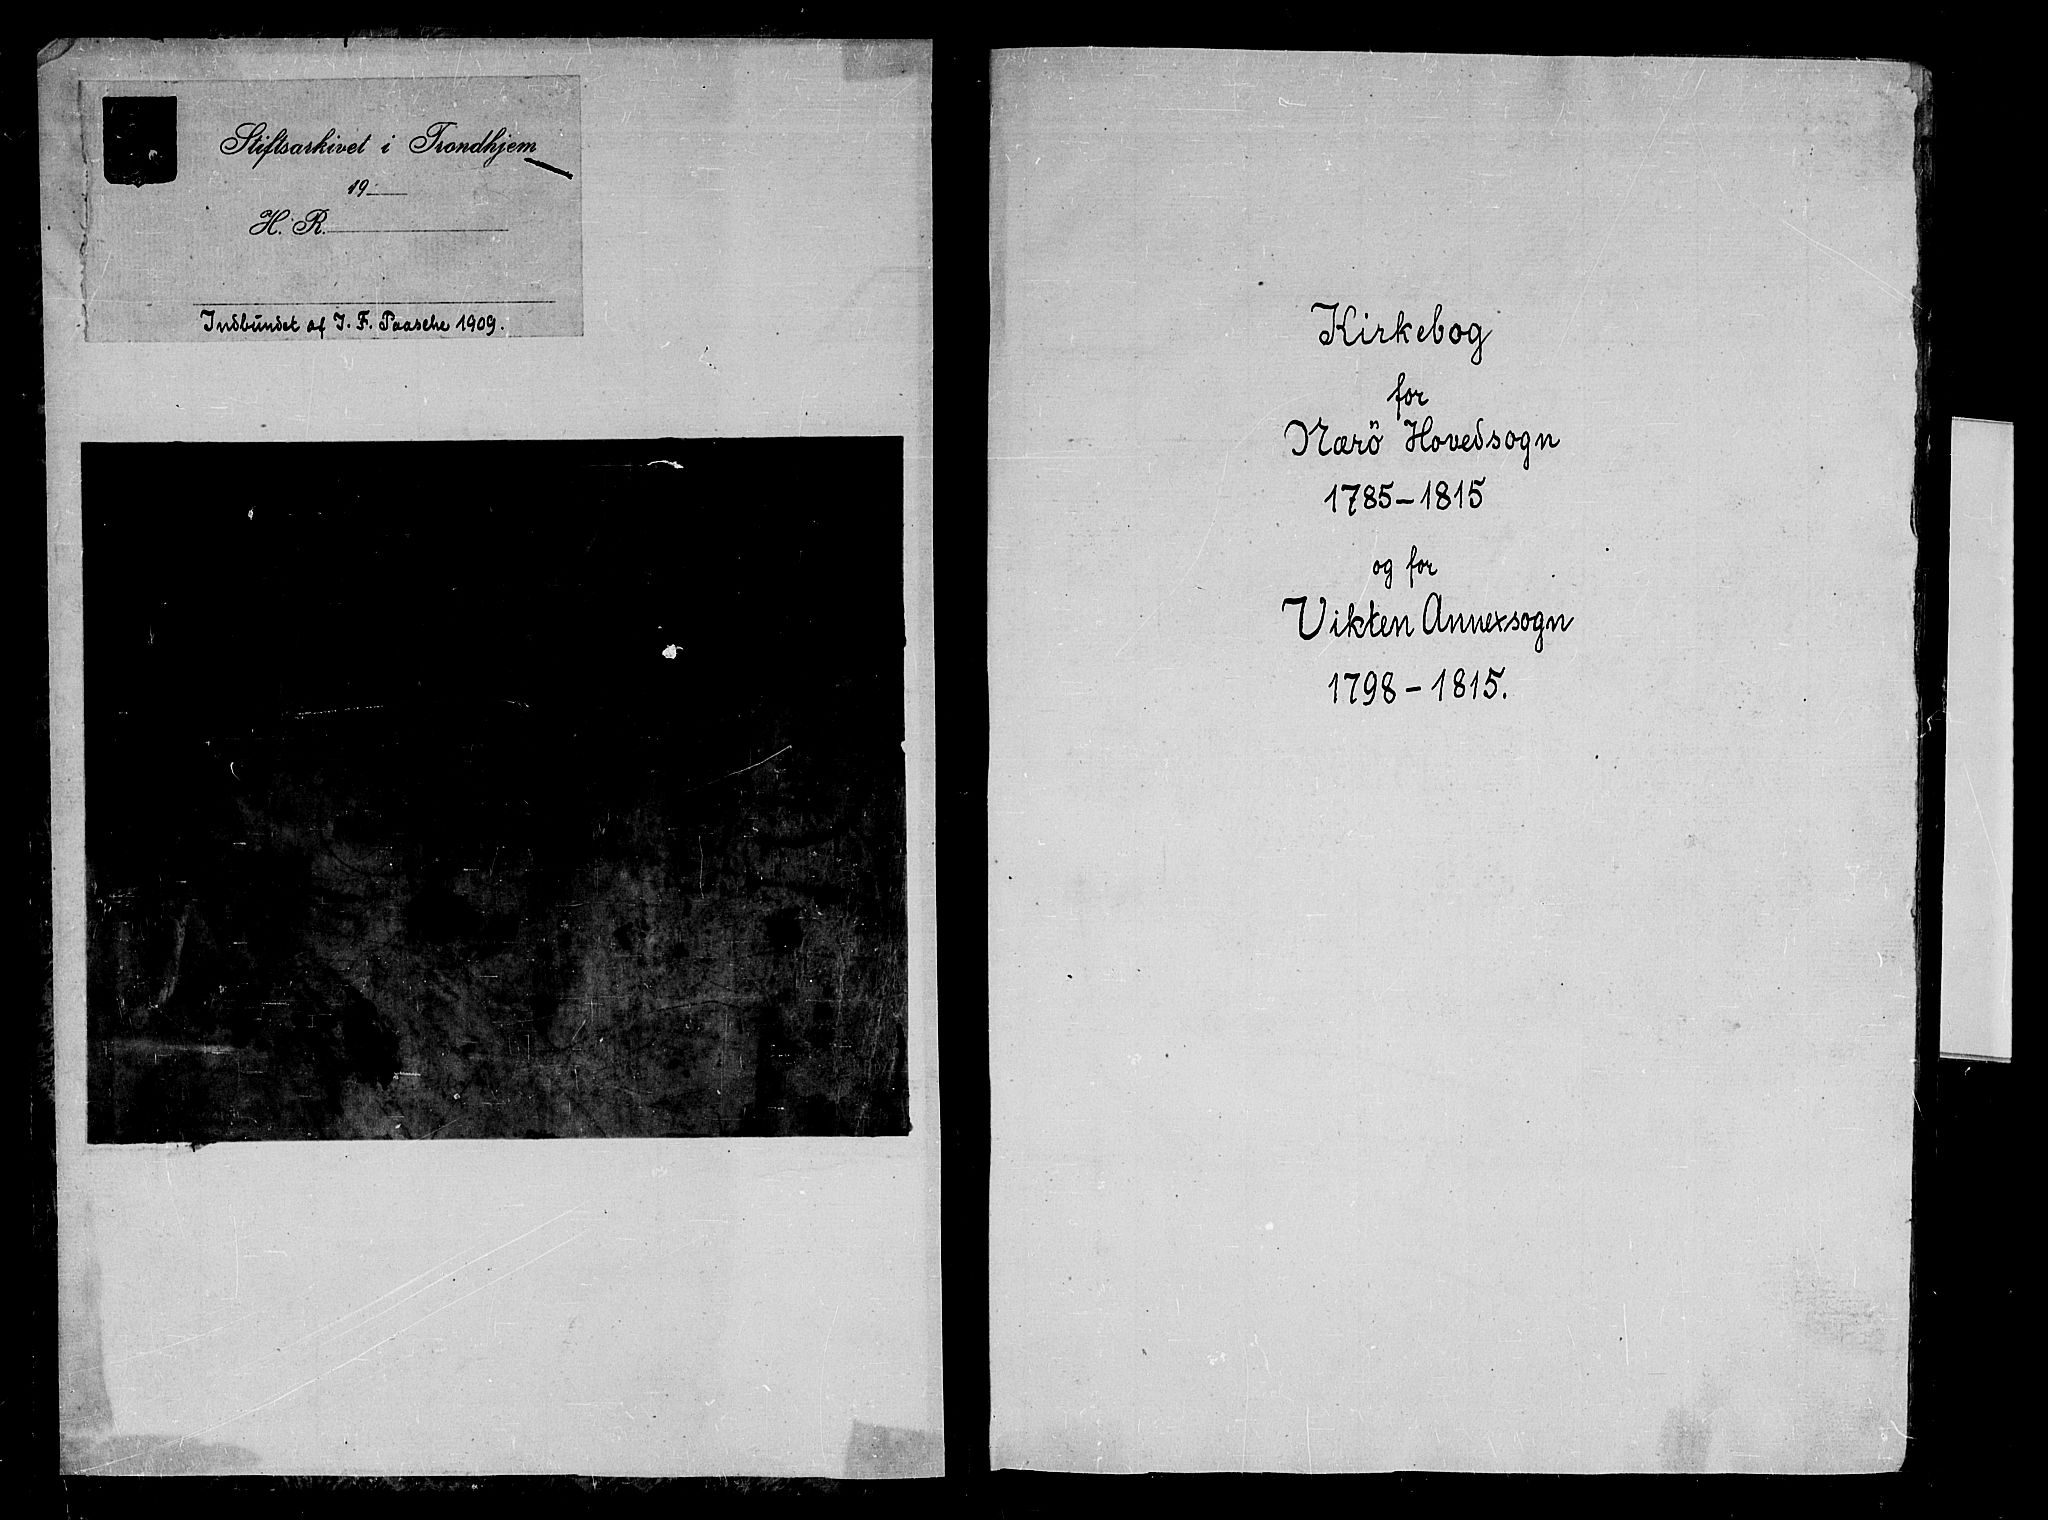 Stiftsarkivet i Trondhjem
19
H. R.
Indbundet af J. F. Paasche 1909.
Kirkebog
for
Nærö Hovedsogn
1785-1815
og for
Vikten Annexsogn
1798-1815.